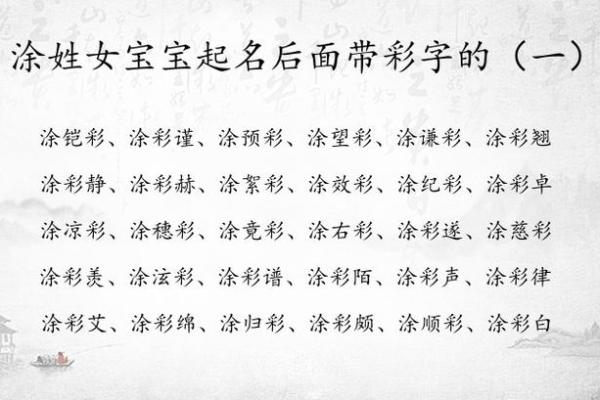 涂姓女宝宝起名后面带彩字的（一）
涂铠彩、涂彩谨、涂预彩、涂望彩、涂谦彩、涂彩翘
涂彩静、涂彩赫、涂絮彩、涂效彩、涂纪彩、涂彩卓
涂凉彩、涂穗彩、涂竟彩、涂右彩、涂彩遂、涂慈彩
涂彩羡、涂泫彩、涂彩谱、涂彩陌、涂彩声、涂彩律
涂彩艾、涂彩绵、涂归彩、涂彩颇、涂顺彩、涂彩白